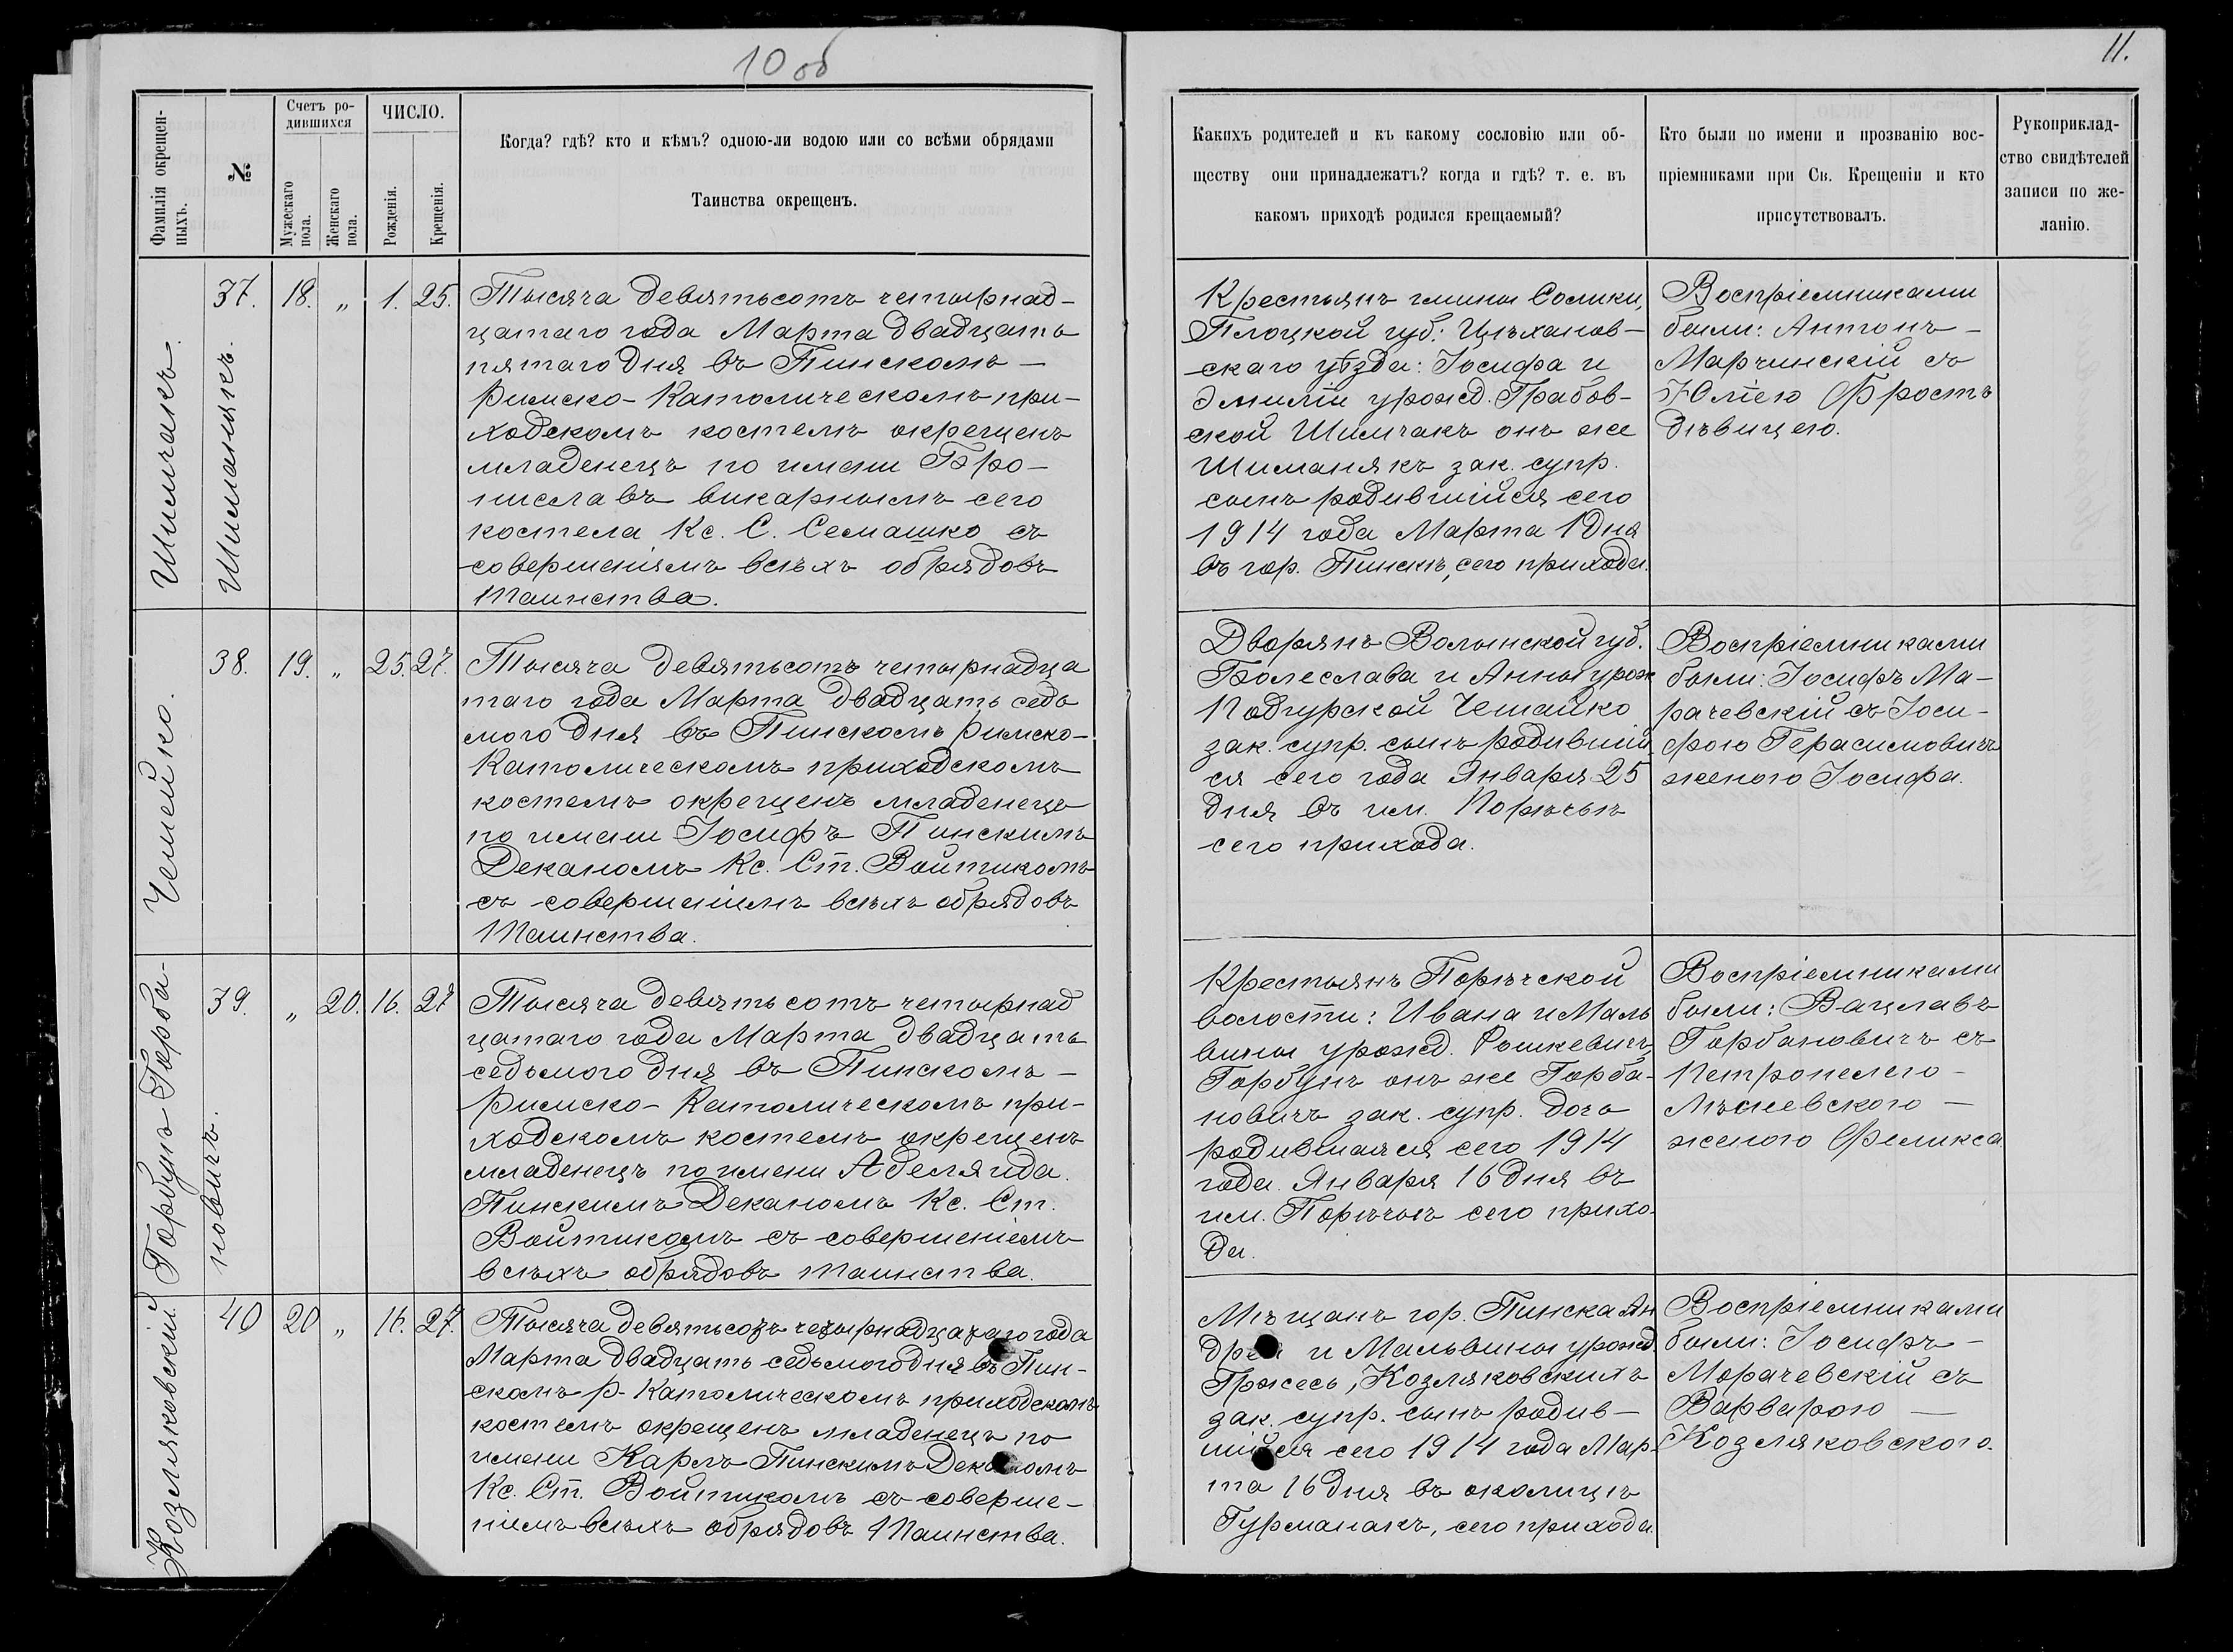 10 об
11.
Фамилія окрещен-
ныхъ.
№
Счетъ ро-
дившихся
Мужескаго
пола.
Женскаго
пола.
ЧИСЛО.
Рожденія.
Крещенія.
Когда? гдѣ? кто и кѣмъ? одною-ли водою или со всѣми обрядами
Таинства окрещенъ.
Какихъ родителей и къ какому сословію или об-
ществу они принадлежатъ? когда и гдѣ? т. е. въ
какомъ приходѣ родился крещаемый?
Кто были по имени и прозванію вос-
пріемниками при Св. Крещеніи и кто
присутствовалъ.
Рукоприклад-
ство свидѣтелей
записи по же-
ланію.
Шимчакъ.
Шиманякъ.
37. 18. „ 1. 25.
Тысяча девятьсотъ четырнад-
цатаго года Марта двадцать
пятаго дня въ Пинскомъ –
Римско-Католическомъ при-
ходскомъ костелѣ окрещенъ
младенецъ по имени Бро-
ниславъ викарнымъ сего
костела Кс. С. Семашко съ
совершеніемъ всѣхъ обрядовъ
Таинства.
Крестьянъ гмины Солики,
Плоцкой губ. Цѣханов-
скаго уѣзда: Іосифа и
Эмиліи урожд. Грабов-
ской Шимчакъ онъ же
Шиманякъ зак. супр.
сынъ родившійся сего
1914 года Марта 1 дня
въ гор. Пинскѣ, сего прихода.
Воспріемниками
были: Антонъ –
Марчинскій съ
Юліею Фростъ
дѣвицею.
Чешейко.
38. 19. „ 25. 27.
Тысяча девятьсотъ четырнадца
таго года Марта двадцать седь
мого дня въ Пинскомъ Римско-
Католическомъ приходскомъ
костелѣ окрещенъ младенецъ
по имени Іосифъ Пинскимъ
Деканомъ Кс. Ст. Войтикомъ
съ совершеніемъ всѣхъ обрядовъ
Таинства.
Дворянъ Волынской губ.
Болеслава и Анны урож
Подгурской Чешайко
зак. супр. сынъ родившій
ся сего года Января 25
дня въ им. Порѣчьѣ
сего прихода.
Воспріемниками
были: Іосифъ Ма-
рачевскій съ Іоси-
фою Герасимовичъ
женою Іосифа.
Горбунъ Горба-
новичъ.
39. „ 20. 16. 27
Тысяча девятьсотъ четырнад
цатаго года Марта двадцать
седьмого дня въ Пинскомъ –
Римско-Католическомъ при-
ходскомъ костелѣ окрещенъ
младенецъ по имени Аделяида.
Пинскимъ Деканомъ Кс. Ст.
Войтикомъ съ совершеніемъ
всѣхъ обрядовъ таинства.
Крестьянъ Порѣчской
волости: Ивана и Маль
вины урожд. Рошкевичъ
Горбунъ онъ же Горба-
новичъ зак. супр. дочь
родившаяся сего 1914
года. Января 16 дня въ
им. Порѣчьѣ сего прихо-
да.
Воспріемниками
были: Вацлавъ
Горбановичъ съ
Петронелею –
женою Феликса
Козляковскій.
40 20 „ 16. 27.
Тысяча девятьсотъ четырнадцатаго года
Марта двадцать седьмого дня въ Пин-
скомъ Р-Католическомъ приходскомъ
костелѣ окрещенъ младенецъ по
имени Карлъ Пинскимъ Деканомъ
Кс. Ст. Войтикомъ съ соверше-
ніемъ всѣхъ обрядовъ Таинства.
Мѣщанъ гор. Пинска Ан
дрея и Мальвины урожд.
Гржесь, Козляковскихъ
зак. супр. сынъ родив-
шійся сего 1914 года Мар-
та 16 дня въ околицѣ
Гурманакъ, сего прихода.
Воспріемниками
были: Іосифъ –
Морачевскій съ
Варварою –
Козляковскою.